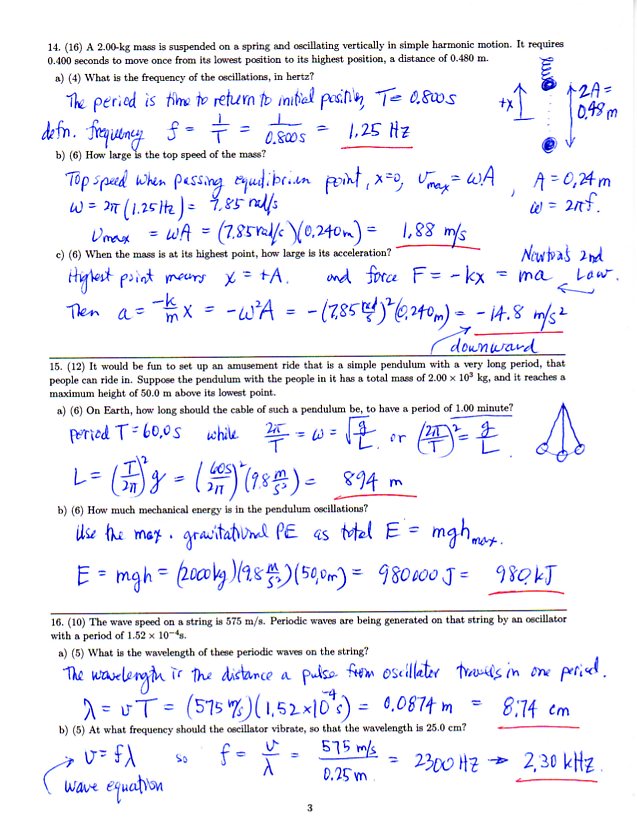 14. (16) A 2.00-kg mass is suspended on a spring and oscillating vertically in simple harmonic motion. It requires
0.400 seconds to move once from its lowest position to its highest position, a distance of 0.480 m.
a) (4) What is the frequency of the oscillations, in hertz?
The period is time to return to initial position, T = 0.800s
+x
2A = 0.48m
defn. frequency f = 1/T = 1/0.800s = 1.25 Hz
b) (6) How large is the top speed of the mass?
Top speed when passing equilibrium point, x=0, v_max = ωA, A = 0.24 m
ω = 2π(1.25Hz) = 7.85 rad/s
ω = 2πf.
v_max = ωA = (7.85 rad/s)(0.240m) = 1.88 m/s
c) (6) When the mass is at its highest point, how large is its acceleration?
Newton's 2nd Law.
Highest point means x = +A. and force F = -kx = ma
Then a = -k/m x = -ω²A = -(7.85 rad/s)²(0.240m) = -14.8 m/s²
downward
15. (12) It would be fun to set up an amusement ride that is a simple pendulum with a very long period, that
people can ride in. Suppose the pendulum with the people in it has a total mass of 2.00 × 10³ kg, and it reaches a
maximum height of 50.0 m above its lowest point.
a) (6) On Earth, how long should the cable of such a pendulum be, to have a period of 1.00 minute?
period T = 60.0s while 2π/T = ω = √(g/L) or (2π/T)² = g/L
L = (T/2π)² g = (60s/2π)² (9.8 m/s²) = 894 m
b) (6) How much mechanical energy is in the pendulum oscillations?
Use the max. gravitational PE as total E = mgh_max.
E = mgh = (2000kg)(9.8 m/s²)(50.0m) = 980000 J = 980. kJ
16. (10) The wave speed on a string is 575 m/s. Periodic waves are being generated on that string by an oscillator
with a period of 1.52 × 10⁻⁴s.
a) (5) What is the wavelength of these periodic waves on the string?
The wavelength is the distance a pulse from oscillator travels in one period.
λ = vT = (575 m/s)(1.52×10⁻⁴ s) = 0.0874 m = 8.74 cm
b) (5) At what frequency should the oscillator vibrate, so that the wavelength is 25.0 cm?
v = fλ so f = v/λ = 575 m/s / 0.25 m = 2300 Hz → 2.30 kHz.
wave equation
3